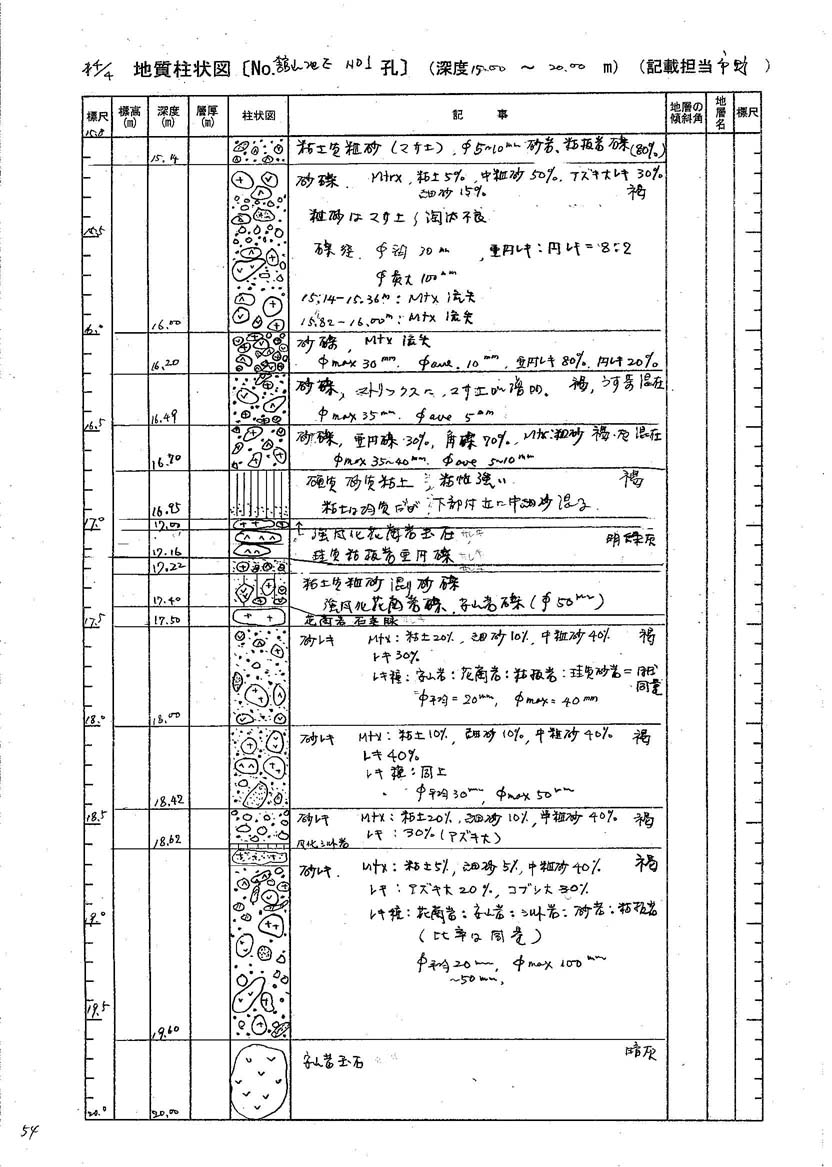 4/4 地質柱状図〔No. NO1 孔〕 (深度15.00 ~ 20.00 m) (記載担当 )
標尺 標高(m) 深度(m) 層厚(m) 柱状図 記事 地層の傾斜角 地層名 標尺
15.14 粘土質粗砂(マサ土), φ5~10mm 砂岩、粘板岩礫(80%)
砂礫. Mtrx, 粘土5%, 中粗砂50%, アズキ大レキ30%
細砂15% 褐
15.5 粗砂はマサ土 淘汰不良
礫径 φ平均30mm, 亜円レキ:円レキ=8:2
φ最大100mm
15.14-15.36m: Mtx 流失
16.0 16.00 15.82-16.00m: Mtx 流失
砂礫, Mtx 流失
16.20 φmax 30mm. φave. 10mm, 亜円レキ80%, 円レキ20%
砂礫, マトリックスに, マサ土が増加。 褐, 混在
16.5 16.49 φmax 35mm. φave 5mm
砂礫, 亜円礫30%, 角礫70%, Mtx:粗砂 褐・灰混在
16.70 φmax 35~40mm. φave 5~10mm
硬質砂質粘土 粘性強い 褐
16.95 粘土は均質だが 下部付近に中細砂混る
17.0 17.00 強風化花崗岩玉石 明緑灰
17.16 珪質粘板岩亜円礫
17.22
粘土質粗砂混り砂礫
17.40 強風化花崗岩礫, 安山岩礫(φ50mm)
17.5 17.50 花崗岩 石英脈
砂レキ Mtx: 粘土20%, 細砂10%, 中粗砂40% 褐
レキ30%
レキ種: 安山岩:花崗岩:粘板岩:珪質砂岩=ほぼ同量
φ平均=20mm, φmax=40mm
18.0 18.00
砂レキ Mtx: 粘土10%, 細砂10%, 中粗砂40% 褐
レキ40%
レキ種: 同上
18.42 φ平均30mm, φmax 50mm
18.5 砂レキ Mtx: 粘土20%, 細砂10%, 中粗砂40% 褐
レキ: 30%(アズキ大)
18.62 風化シルト岩
砂レキ. Mtx: 粘土5%, 細砂5%, 中粗砂40% 褐
レキ: アズキ大20%, コブシ大30%
19.0 レキ種: 花崗岩:安山岩:シルト岩:砂岩:粘板岩
(比率は同量)
φ平均20mm, φmax 100mm
~50mm,
19.5
19.60
安山岩玉石 暗灰
20.0 20.00
54